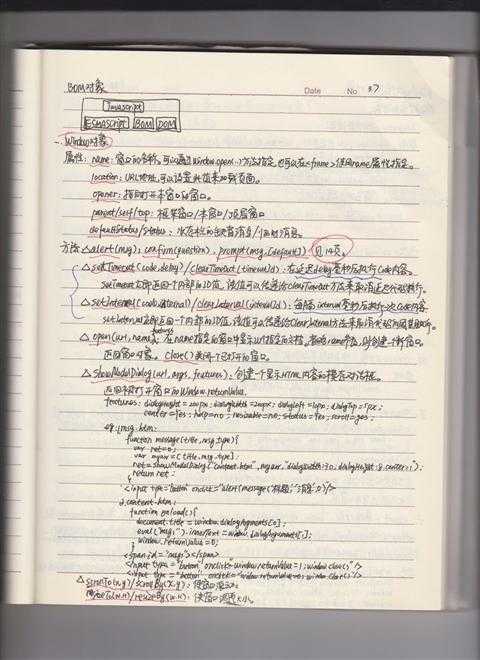 BOM对象
Date No 37
Javascript
ECMAScript BOM DOM
一、Window对象
属性: name: 窗口的名称,可以通过window.open()方法指定,也可以在<frame>使用name属性指定。
location: URL地址,可以设置此值来加载页面。
opener: 指向打开本窗口的窗口。
parent/self/top: 框架窗口/本窗口/顶层窗口
defaultStatus/status: 状态栏的缺省消息/临时消息。
方法 △ alert(msg); confirm(question), prompt(msg,[default]) 见14页。
△ setTimeout(code,delay)/clearTimeout(timeoutId): 在延迟delay毫秒后执行code内容。
setTimeout立即返回一个内部的ID值,该值可以传递给clearTimeout方法来取消
△ setInterval(code,interval)/clearInterval(intervalId): 每隔interval毫秒后执行一次code内容
setInterval立即返回一个内部的ID值,该值可以传递给clearInterval方法来取消
features
△ open(url, name): 在name指定的窗口中显示url指定的文档,
返回窗口对象。close()关闭一个已打开的窗口。
△ showModalDialog(url, args, features): 创建一个显示HTML内容的模态对话框。
返回被打开窗口的window.returnValue.
features: dialogHeight=200px; dialogWidth=200px; dialogLeft=10px; dialogTop=5px;
center=yes; help=no; resizable=no; status=yes; scroll=yes;
eg: 1.msg.htm:
function message(title,msg,type){
var ret=0;
var myarr=[title,msg,type];
ret=showModalDialog("content.htm",myarr,
return ret;
}
<input type="button" onclick="alert(message(
2.content.htm:
function onload(){
document.title = window.dialogArguments[0];
window.returnValue=0;
}
<span id="msg"></span>
<input type="button" onclick="window.returnValue=1; window.close();"/>
<input type="button" onclick="window.returnValue=0; window.close();"/>
△ scrollTo(x,y)/scrollBy(x,y):
resizeTo(w,h)/resizeBy(w,h):